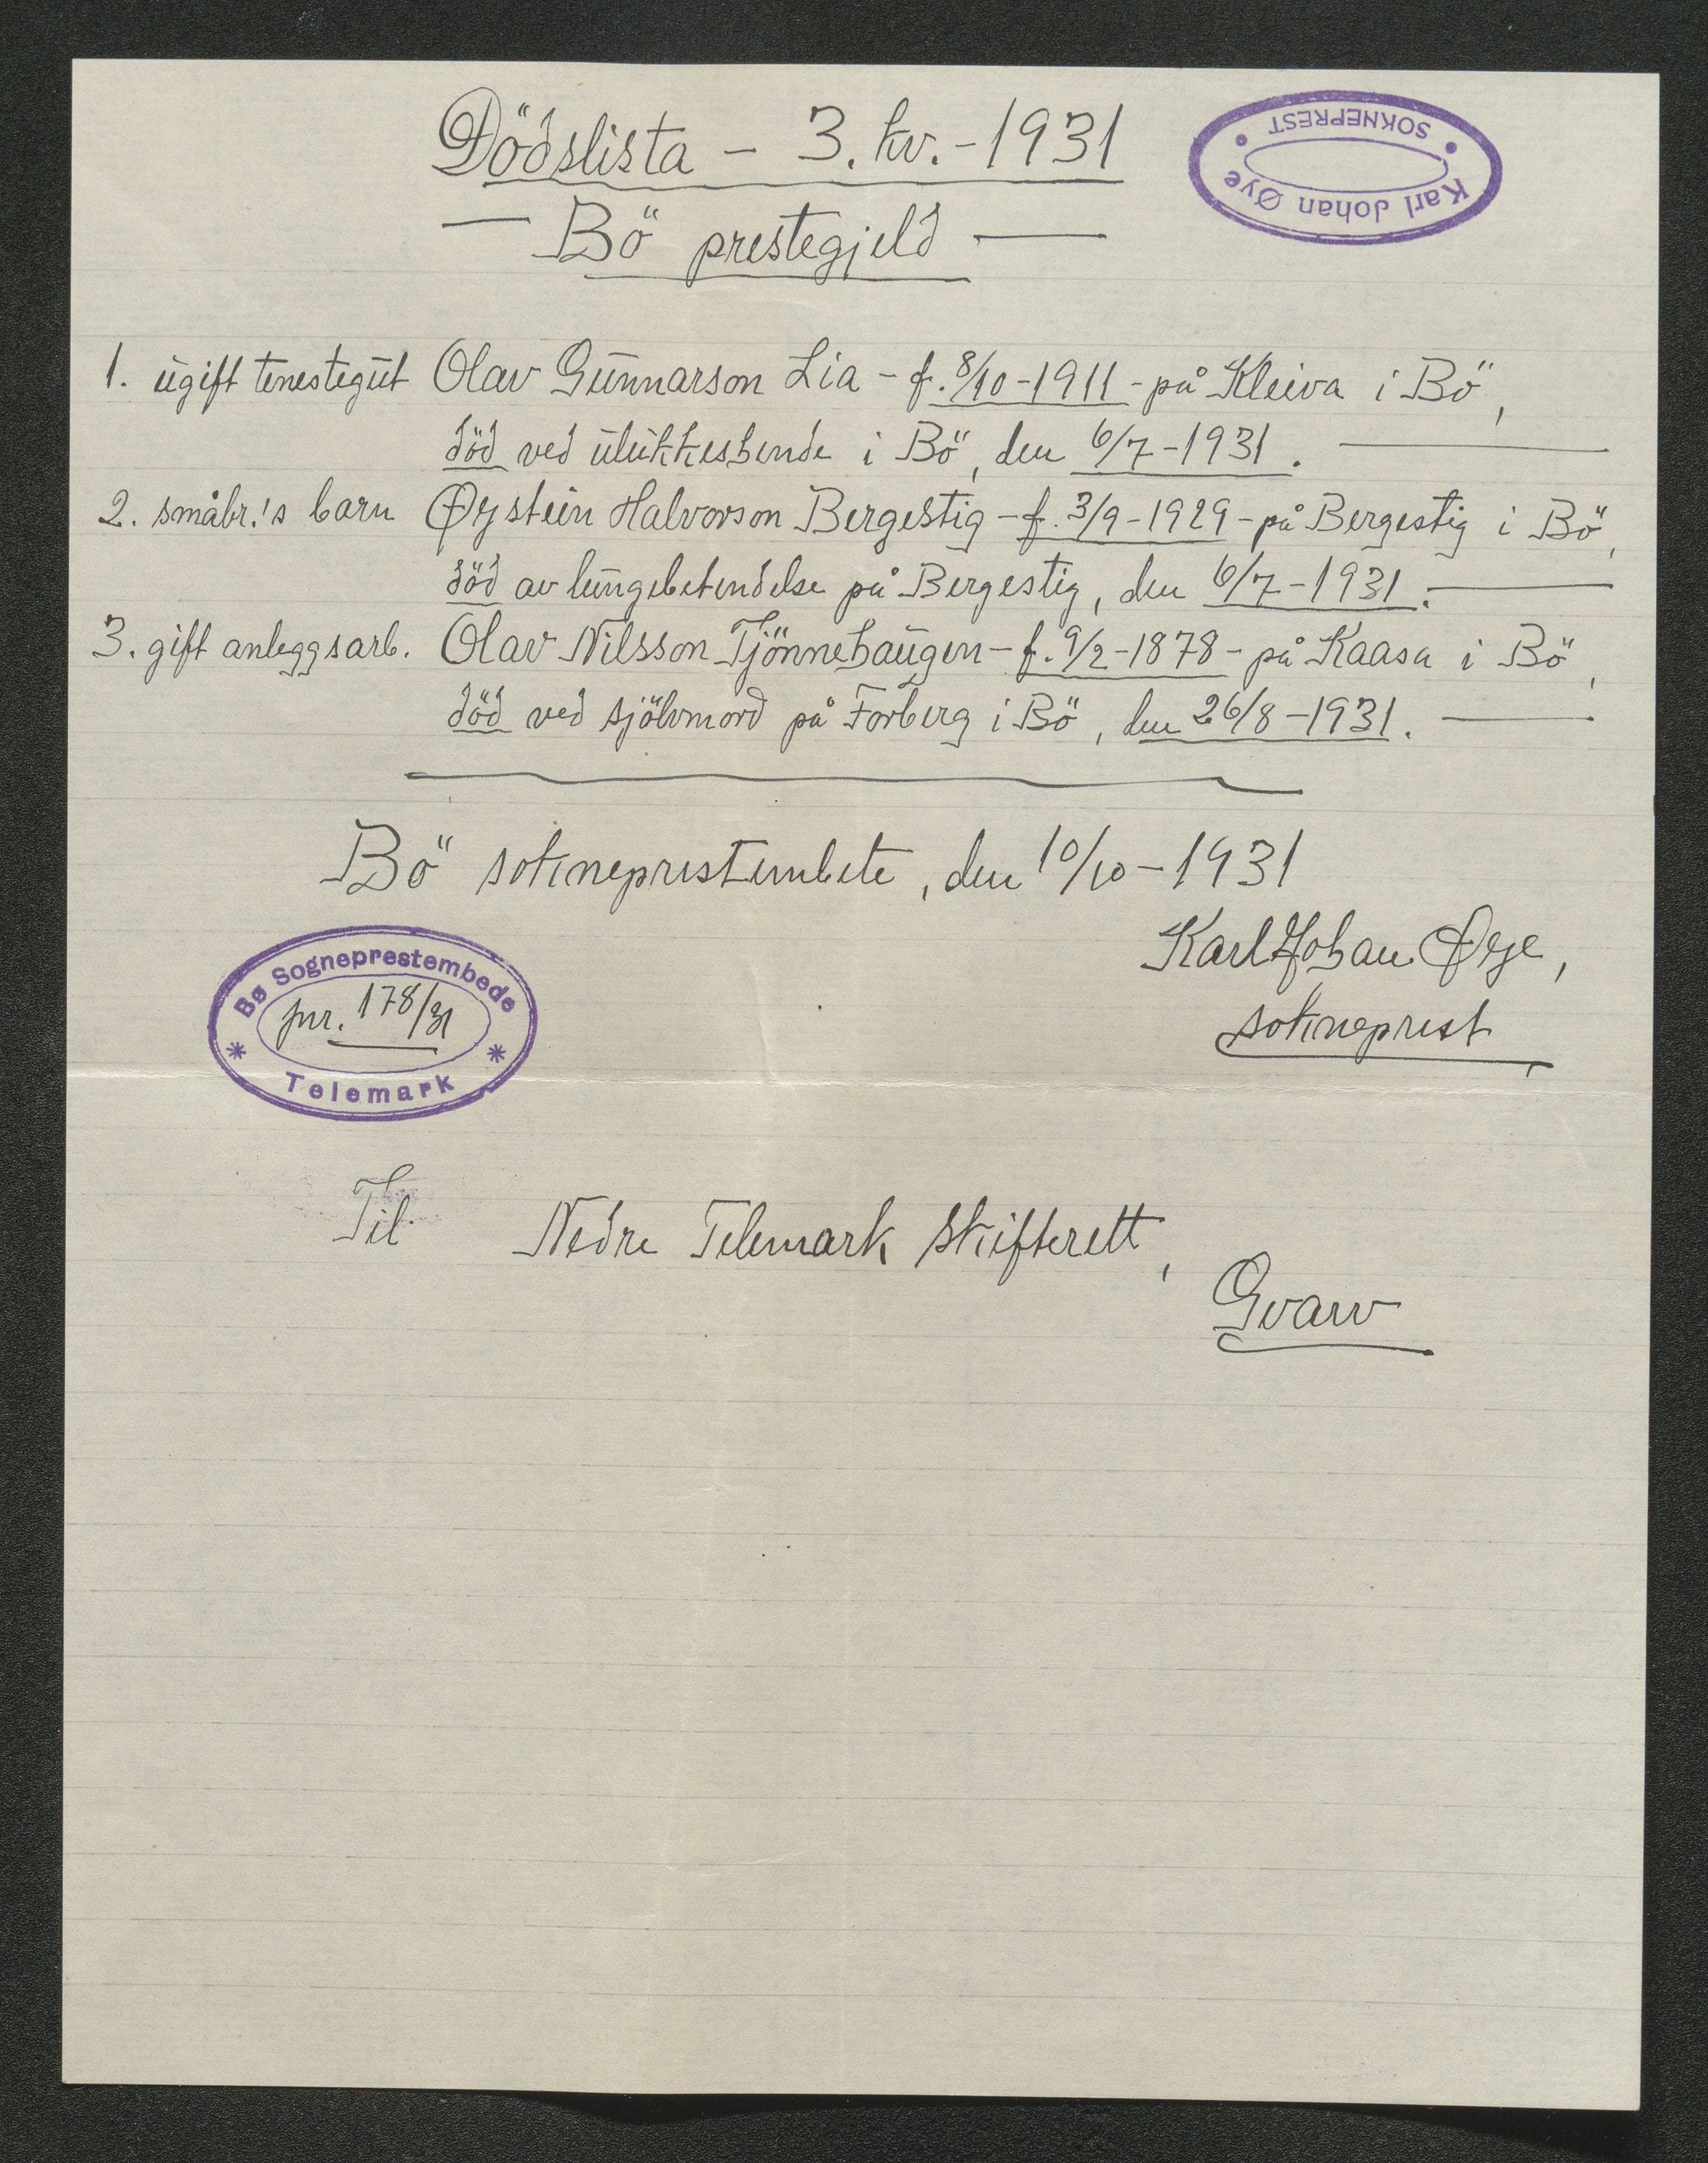 Dödslista – 3. kv. – 1931
SOKNEPREST
Karl Johan Øye
— Bö prestegjeld —
1. ugift tenestegut Olav Gunnarson Lia – f. 8/10 – 1911 – på Kleiva i Bö,
död ved ulukkeshende i Bö, den 6/7 – 1931. —
2. småbr.'s barn Øystein Halvorson Bergestig – f. 3/9 – 1929 – på Bergestig i Bö,
död av lungebetendelse på Bergestig, den 6/7 – 1931. —
3. gift anleggsarb. Olav Nilsson Tjönnehaugen – f. 9/2 – 1878 – på Kaasa i Bö,
död ved sjölvmord på Forberg i Bö, den 26/8 – 1931. —
Bö sokneprestembete, den 10/10 – 1931
Karl Johan Øye,
sokneprest
Bø Sogneprestembede
jnr. 178/31
* Telemark *
Til Nedre Telemark skifterett,
Gvarv